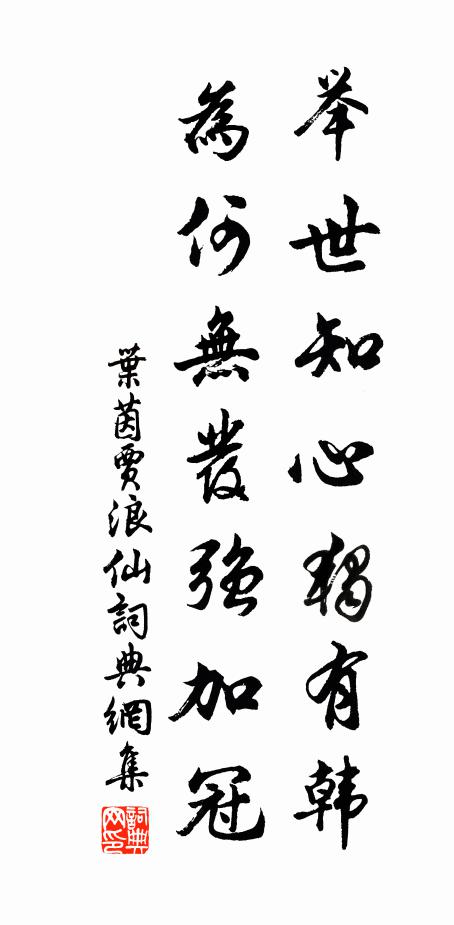 举世知心獨有韩
為何無髮強加冠
葉茵賈浪仙詞典網集
詞典
网印